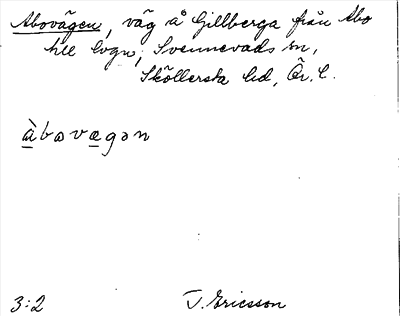 Abovägen, väg å Gillberga från Abo
till lvgr; Svennevads sn,
Sköllersta hd, Ör. l.
àbovægən
3:2 T. Ericsson